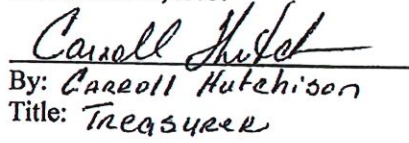 Carroll Hutch
By: Carroll Hutchison
Title: Treasurer